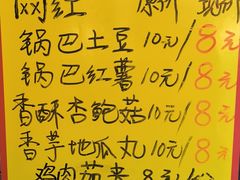 网红 原价 现价
锅巴土豆 10元/8元
锅巴红薯 10元/8元
香酥杏鲍菇 10元/8元
香芋地瓜丸 10元/8元
鸡肉茄夹 8元/份